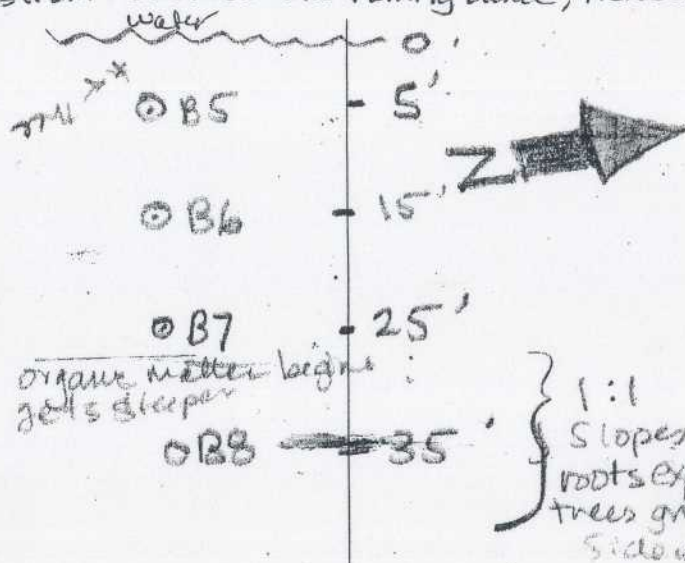 water
0'
B5 5'
N
B6 15'
B7 25'
organic matter begins
gets steeper
B8 35'
1:1
Slopes
roots exp
trees gr
side